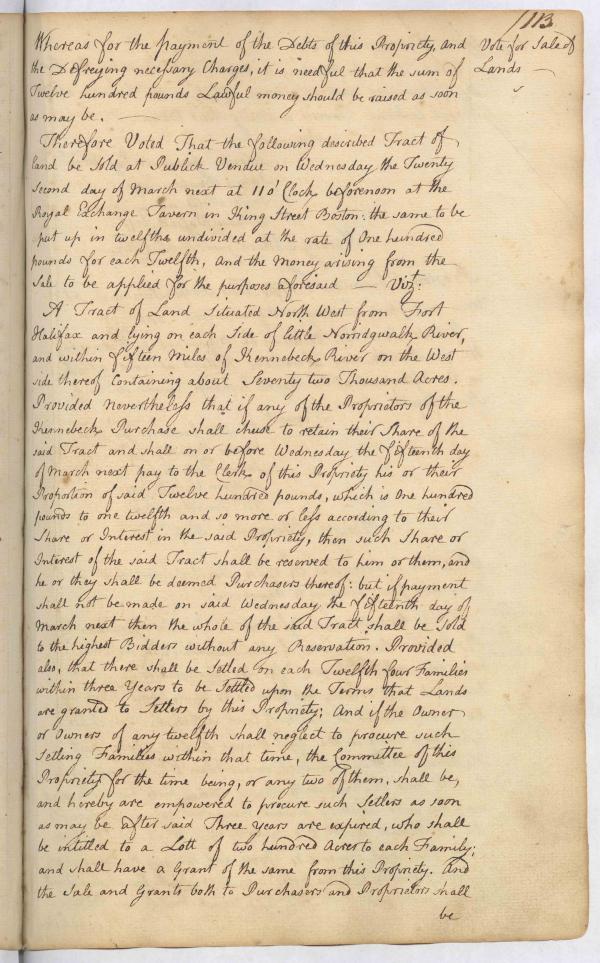 113.
Whereas for the payment of the Debts of this Propriety, and
the Defreying necessary Charges, it is needful that the sum of
Twelve hundred pounds Lawful money should be raised as soon
as may be. —
Vote for Sale of
Lands —
Therefore Voted That the following described Tract of
land be Sold at Publick Vendue on Wednesday the Twenty
Second day of March next at 11 o' Clock beforenoon at the
Royal Exchange Tavern in King Street Boston: the same to be
put up in twelfths undivided at the rate of One hundred
pounds for each Twelfth, and the Money arising from the
Sale to be applied for the purposes aforesaid — Vizt:
A Tract of Land Situated North West from Fort
Halifax and lying on each Side of little Norridgwalk River,
and within fifteen Miles of Kennebeck River on the West
side thereof Containing about Seventy two Thousand Acres.
Provided nevertheless that if any of the Proprietors of the
Kennebeck Purchase shall chuse to retain their Share of the
said Tract and shall on or before Wednesday the fifteenth day
of March next pay to the Clerk of this Propriety his or their
Proportion of said Twelve hundred pounds, which is One hundred
pounds to one twelfth and so more or less according to their
Share or Interest in the said Propriety, then such Share or
Interest of the said Tract shall be reserved to him or them, and
he or they shall be deemed Purchasers thereof: but if payment
shall not be made on said Wednesday the fifteenth day of
March next then the whole of the said Tract shall be Sold
to the highest Bidders without any Reservation. Provided
also, that there shall be Setled on each Twelfth four Families
within three Years to be Settled upon the Terms that Lands
are granted to Setlers by this Propriety; And if the Owner
or Owners of any twelfth shall neglect to procure such
Setling Families within that time, the Committee of this
Propriety for the time being, or any two of them, shall be,
and hereby are empowered to procure such Setlers as soon
as may be after said Three years are expired, who shall
be intitled to a Lott of two hundred Acres to each Family;
and shall have a Grant of the same from this Propriety. And
the Sale and Grants both to Purchasers and Proprietors shall
be